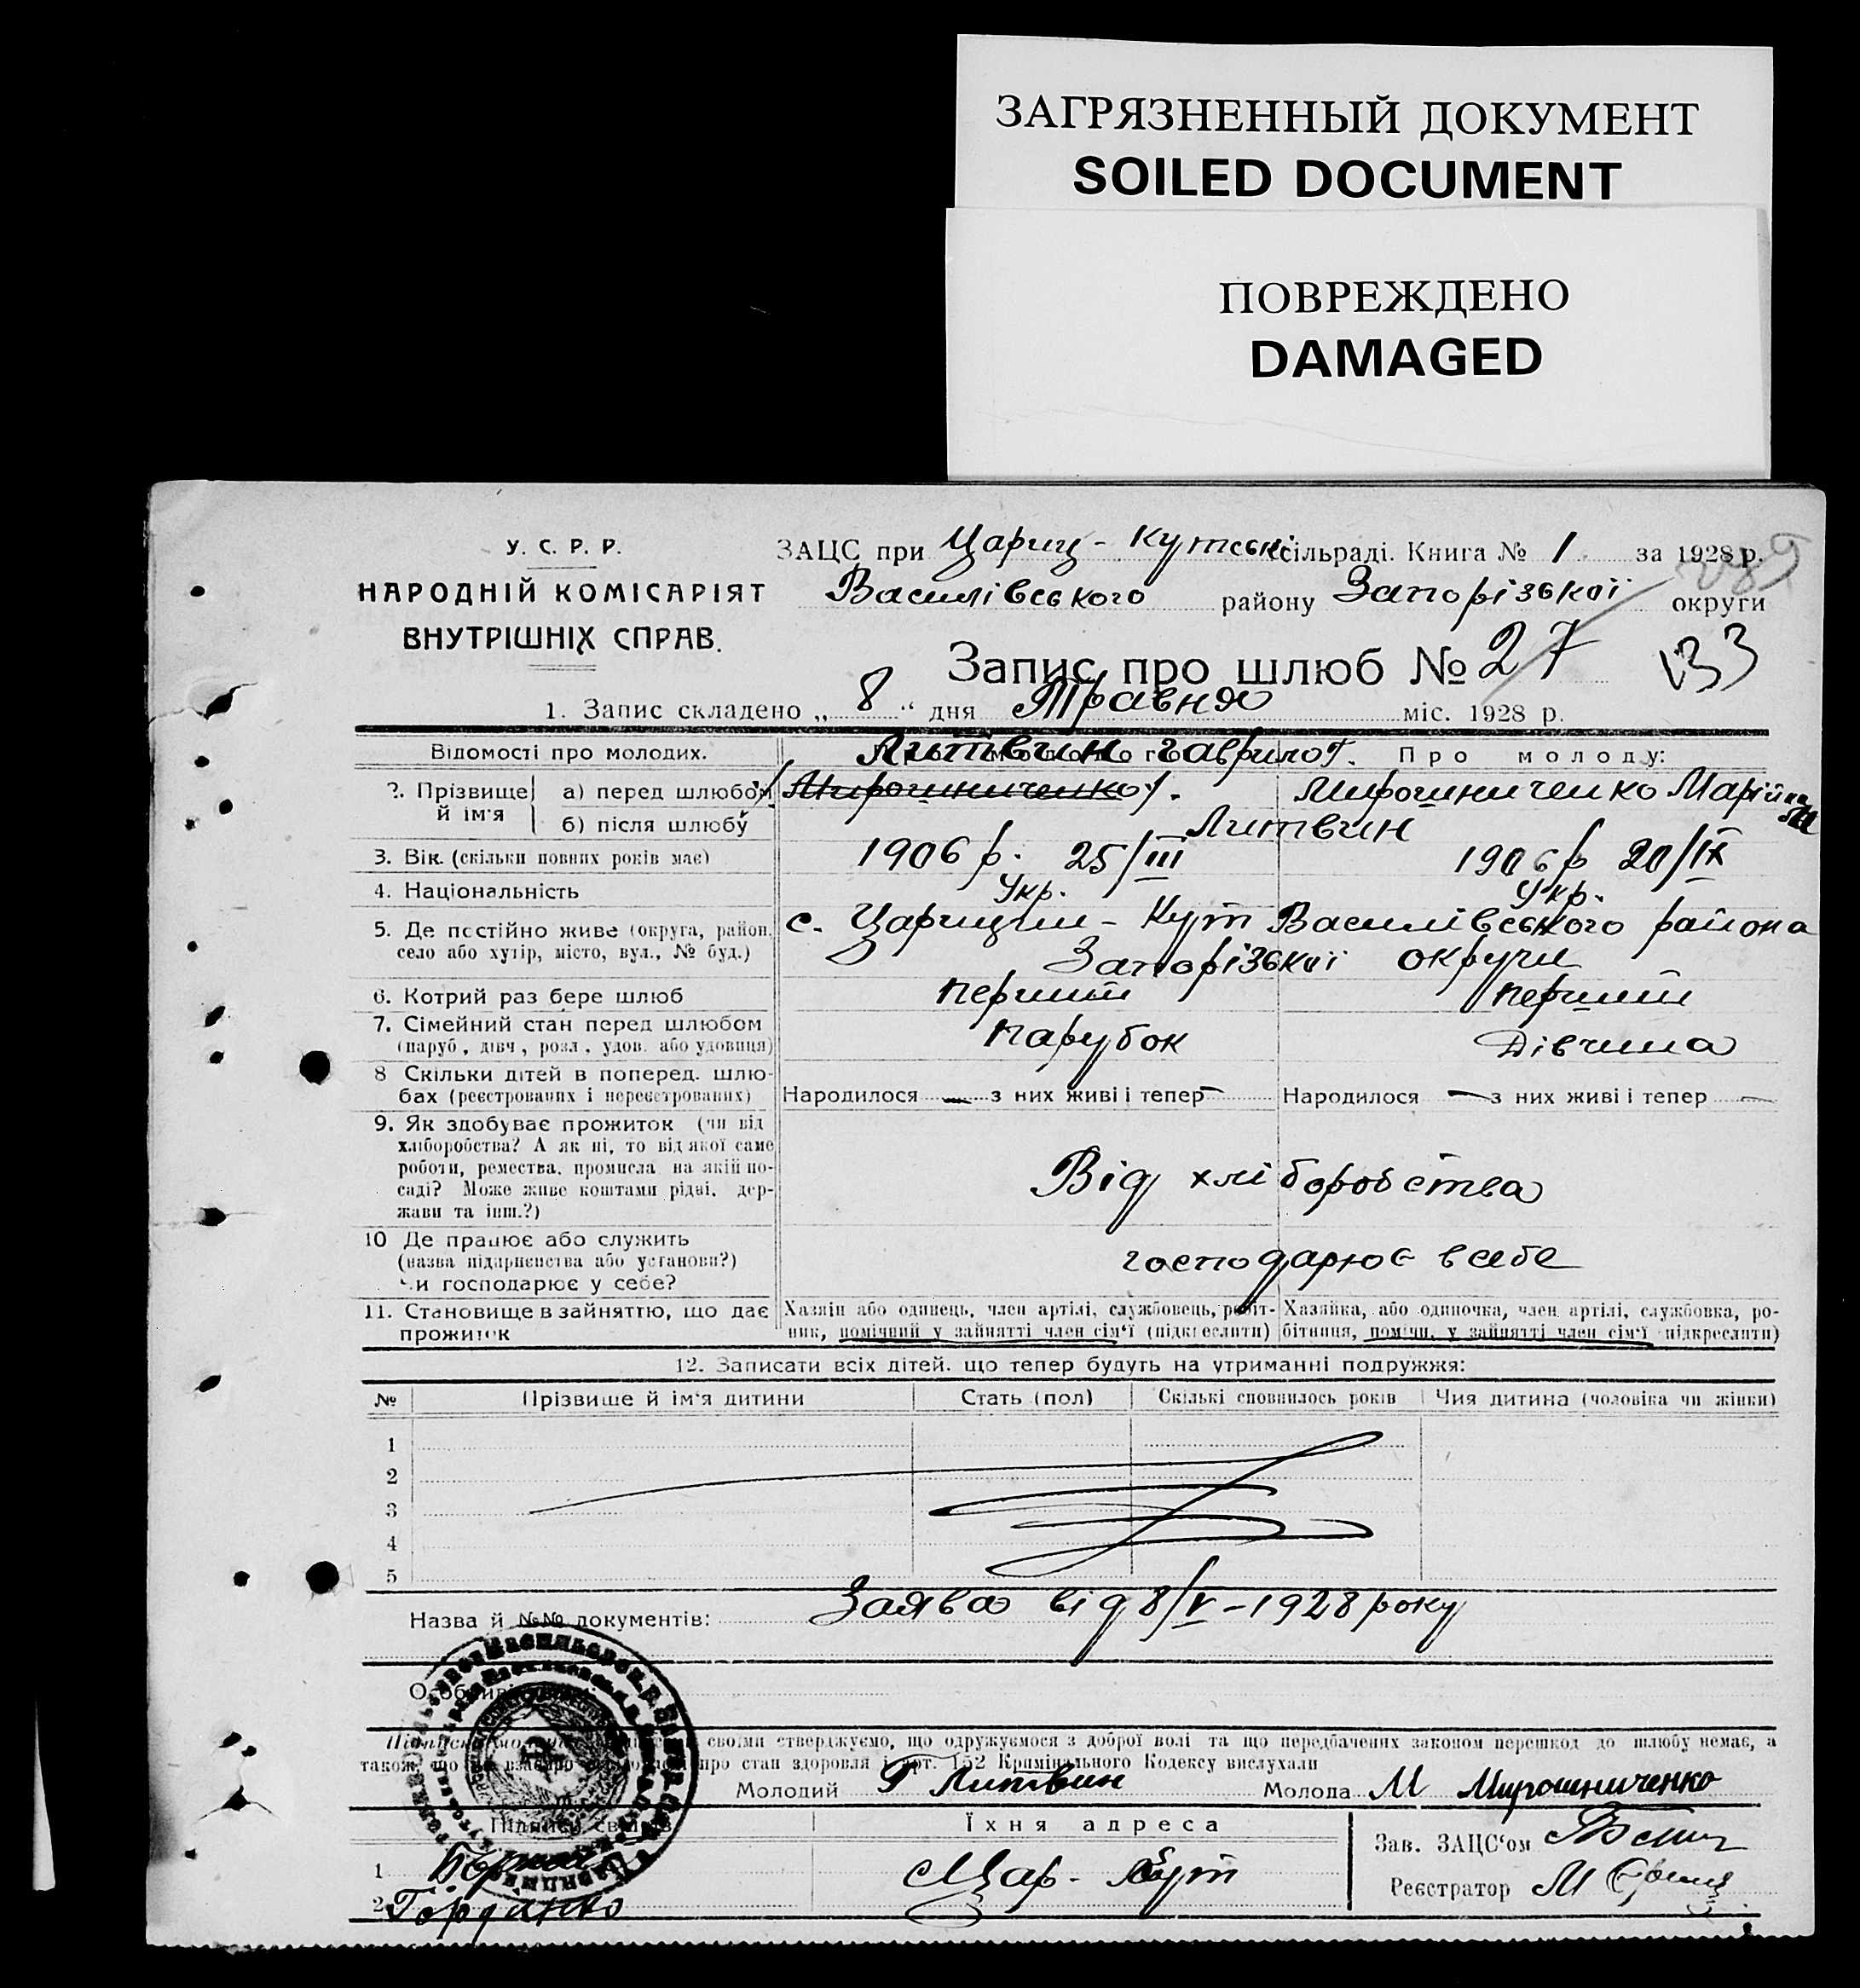 ЗАГРЯЗНЕННЫЙ ДОКУМЕНТ
SOILED DOCUMENT
ПОВРЕЖДЕНО
DAMAGED
У. С. Р. Р.
НАРОДНІЙ КОМІСАРІЯТ
ВНУТРІШНІХ СПРАВ.
ЗАЦС при Цариц-Кутській сільраді. Книга № 1 за 1928 р.
Василівського району Запорізької округи
Запис про шлюб № 27 133
1. Запис складено „ 8 “ дня Травня міс. 1928 р.
Відомості про молодих. Литвин Гаврило Г. Про молоду:
2. Прізвище й ім'я а) перед шлюбом Мирошниченко Мирошниченко Марія
б) після шлюбу Литвин
3. Вік. (скільки повних років має) 1906 р. 25/III 1906 р 20/IX
4. Національність Укр. Укр.
5. Де постійно живе (округа, район, с. Царицин-Кут Василівського района
село або хутір, місто, вул., № буд.) Запорізької округи
6. Котрий раз бере шлюб перший перший
7. Сімейний стан перед шлюбом парубок Дівчина
(паруб, дівч, розл, удов. або удовиця)
8 Скільки дітей в поперед. шлю-
бах (реєстрованих і нереєстрованих) Народилося — з них живі і тепер — Народилося — з них живі і тепер —
9. Як здобуває прожиток (чи від
хліборобства? А як ні, то від якої саме
роботи, ремества, промисла на якій по- Від хліборобства
саді? Може живе коштами рідні, дер-
жави та інш.?)
10 Де працює або служить
(назва підприємства або установи?) господарює в себе
чи господарює у себе?
11. Становище в зайняттю, що дає Хазяїн або одинець, член артілі, службовець, робіт- Хазяйка, або одиночка, член артілі, службовка, ро-
прожиток ник, помічний у зайнятті член сім'ї (підкреслити) бітниця, помічн. у зайнятті член сім'ї підкреслити)
12. Записати всіх дітей. що тепер будуть на утриманні подружжя:
№ Прізвище й ім'я дитини Стать (пол) Скількі сповнилось років Чия дитина (чоловіка чи жінки)
1
2
3
4
5
Назва й №№ документів: Заява від 8/V-1928 року
своїми стверджуємо, що одружуємося з доброї волі та що передбачених законом перешкод до шлюбу немає, а
також, що про стан здоровля і арт. 152 Кримінального Кодексу вислухали
Молодий Г Литвин Молода М Мирошниченко
Підписи свідків Їхня адреса
Зав. ЗАЦС'ом
1 Цар-Кут
Реєстратор М
2